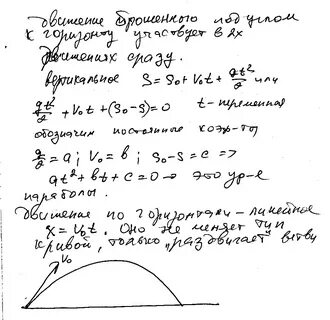 Движение брошенного под углом
к горизонту участвует в двух
движениях сразу.
вертикальное S=S₀+V₀t+gt²/2 или
gt²/2 +V₀t+(S₀-S)=0 t-переменная
обозначим постоянные коэф-ты
g/2=a; V₀=b; S₀-S=c =>
at²+bt+c=0 → это ур-е
параболы.
Движение по горизонтали - линейное
x=V₀t. Оно не меняет тип
кривой, только "раздвигает" ветви
V₀